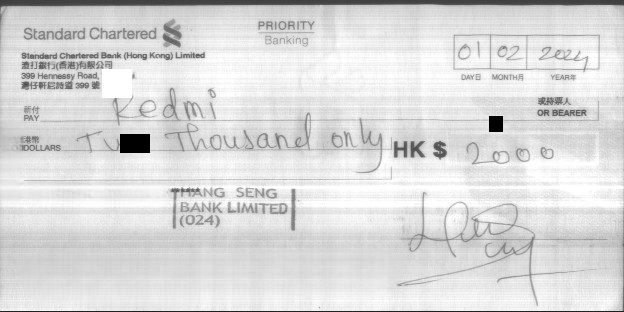 Standard Chartered
PRIORITY
Banking
Standard Chartered Bank (Hong Kong) Limited
渣打銀行(香港)有限公司
399 Hennessy Road,
灣仔軒尼詩道 399 號
01 02 2024
DAY日 MONTH月 YEAR年
祈付
PAY
Redmi
或持票人
OR BEARER
港幣
DOLLARS
Thousand only
HK $ 2000
HANG SENG
BANK LIMITED
(024)